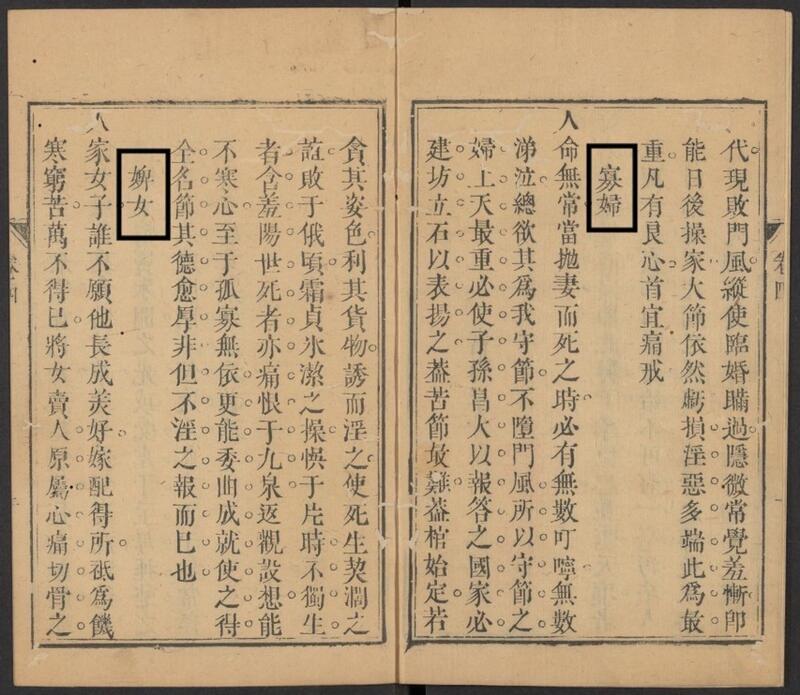 代現敗門風縱使臨婚瞞過隱微常覺羞慚卽
能日後操家大節依然虧損淫惡多端此爲最
重凡有良心首宜痛戒
寡婦
人命無常當拋妻而死之時必有無數叮嚀無數
涕泣總欲其爲我守節不墮門風所以守節之
婦上天最重必使子孫昌大以報答之國家必
建坊立石以表揚之葢苦節最難葢棺始定若
卷四
貪其姿色利其貨物誘而淫之使死生契濶之
誼敗于俄頃霜貞氷潔之操悞于片時不獨生
者含羞陽世死者亦痛恨于九泉返觀設想能
不寒心至于孤寡無依更能委曲成就使之得
全名節其德愈厚非但不淫之報而已也
婢女
人家女子誰不願他長成美好嫁配得所祗爲饑
寒窮苦萬不得已將女賣人原屬心痛切骨之
卷四